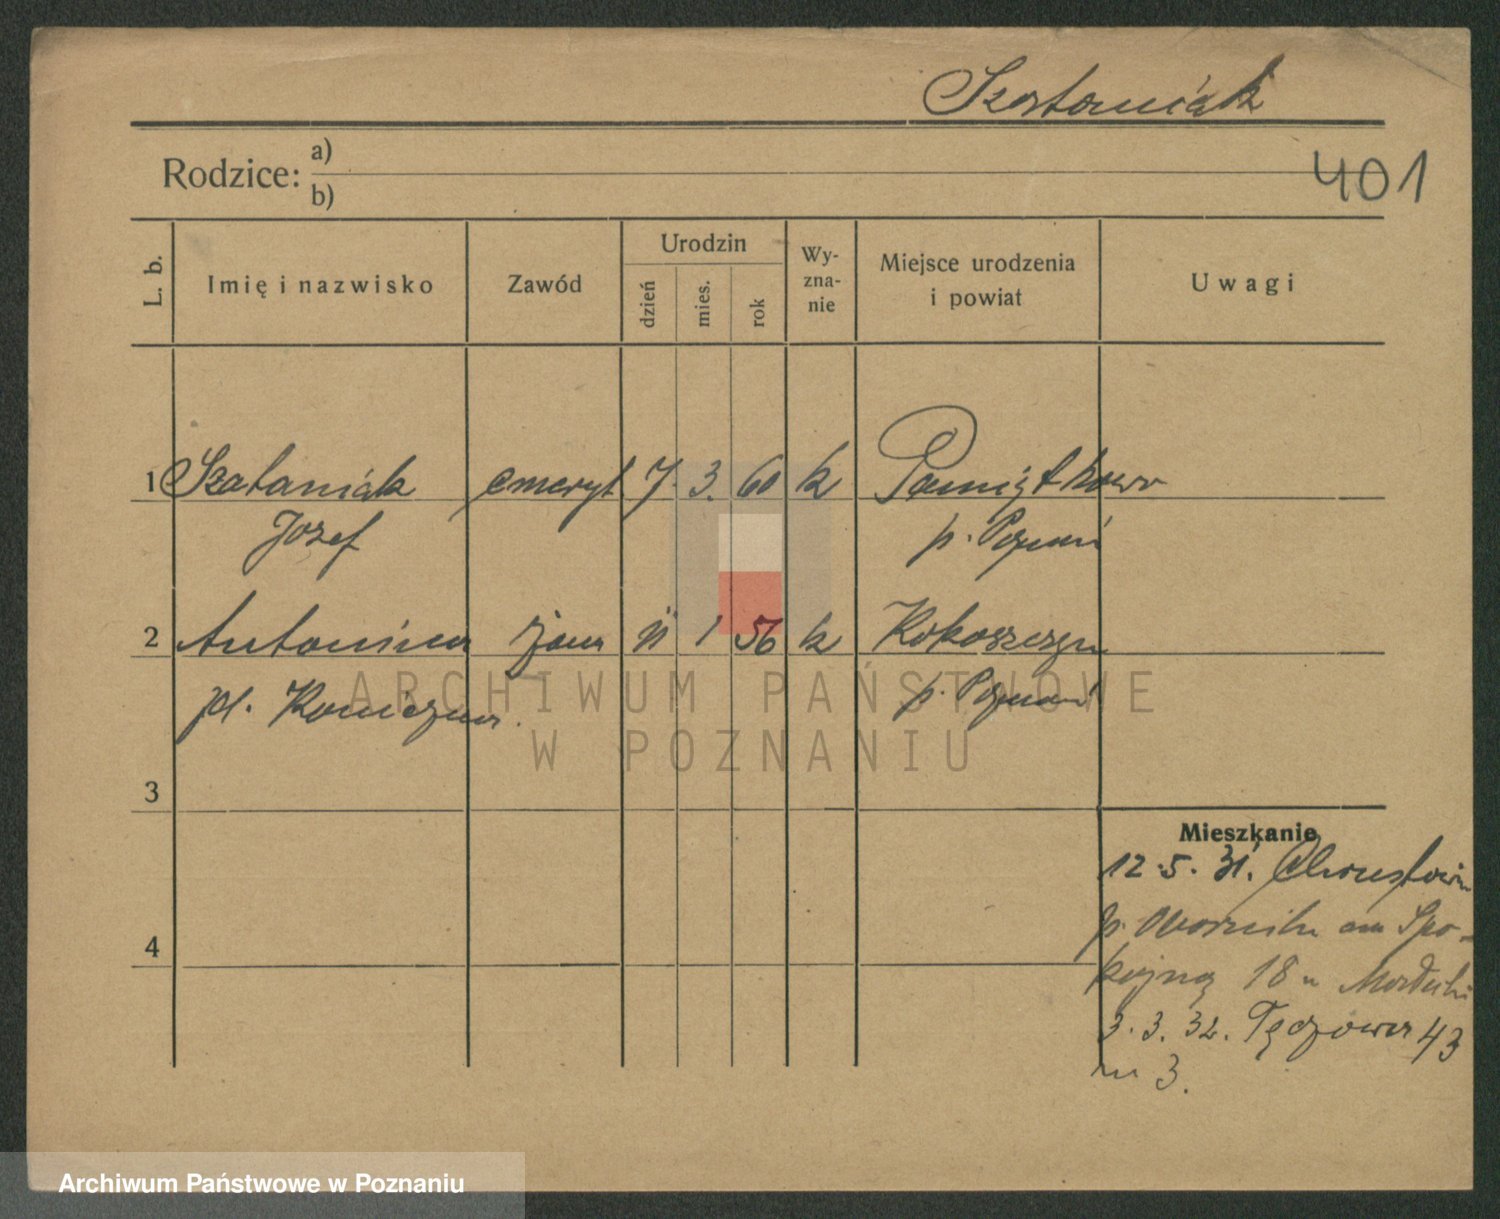 Szataniak
401
Rodzice: a)
b)
L. b.
Imię i nazwisko
Zawód
Urodzin
dzień
mies.
rok
Wy-
zna-
nie
Miejsce urodzenia
i powiat
Uwagi
1 Szataniak emeryt 7. 3. 60 k Pamiątkowo
Józef p. Poznań
2 Antonina żona 11 1 56 k Kokoszczyn
pl. Konieczna. p. Poznań
3
4
Mieszkanie
12.5.31. Chrustowo
p. Oborniki Spo-
kojną 18
3.3.32. Tęczowa 43
m 3.
ARCHIWUM PAŃSTWOWE
W POZNANIU
Archiwum Państwowe w Poznaniu